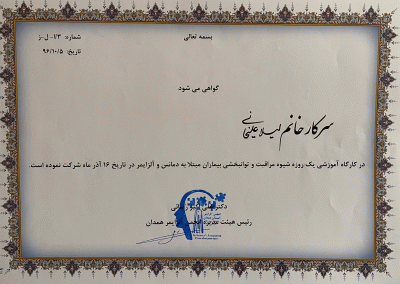 بسمه تعالی
شماره: ۱/۳- ل- ز
تاریخ: ۹۶/۱۰/۵
گواهی می شود
سرکار خانم لیلا علیخانی
در کارگاه آموزشی یک روزه شیوه مراقبت و توانبخشی بیماران مبتلا به دمانس و آلزایمر در تاریخ ۱۶ آذر ماه شرکت نموده است.
دکتر
رئیس هیئت مدیره انجمن آلزایمر همدان